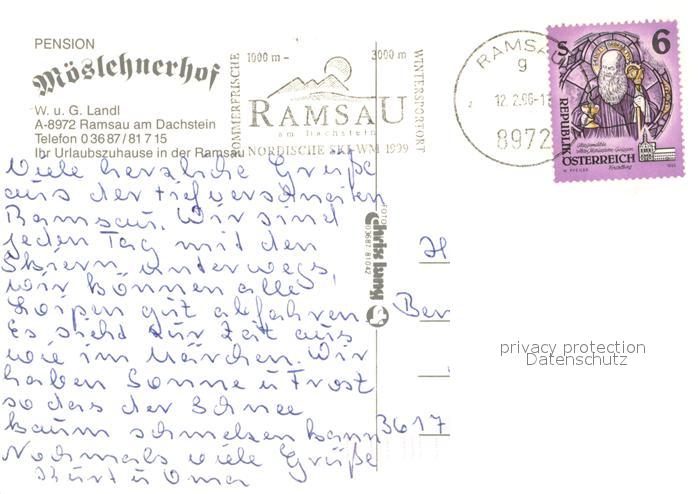 PENSION
Möslehnerhof
W. u. G. Landl
A-8972 Ramsau am Dachstein
Telefon 0 36 87 / 81 7 15
Ihr Urlaubszuhause in der Ramsau
SOMMERFRISCHE
1000 m –
3000 m
WINTERSPORTORT
RAMSAU
am Dachstein
NORDISCHE SKI-WM 1999
RAMSAU
g
12.2.96-1
8972
S 6
REPUBLIK
ÖSTERREICH
Viele herzliche Grüße
aus der tiefverschneiten
Ramsau. Wir sind
jeden Tag mit den
Skiern unterwegs,
wir können alle
Loipen gut abfahren
Es sieht zur Zeit aus
wie im Märchen. Wir
haben Sonne u Frost
so das der Schnee
kaum schmelzen kann
Nochmals viele Grüße
Kurt u Oma
FOTO
Chris Jung
03687/81042
H
Ber
3617
privacy protection
Datenschutz